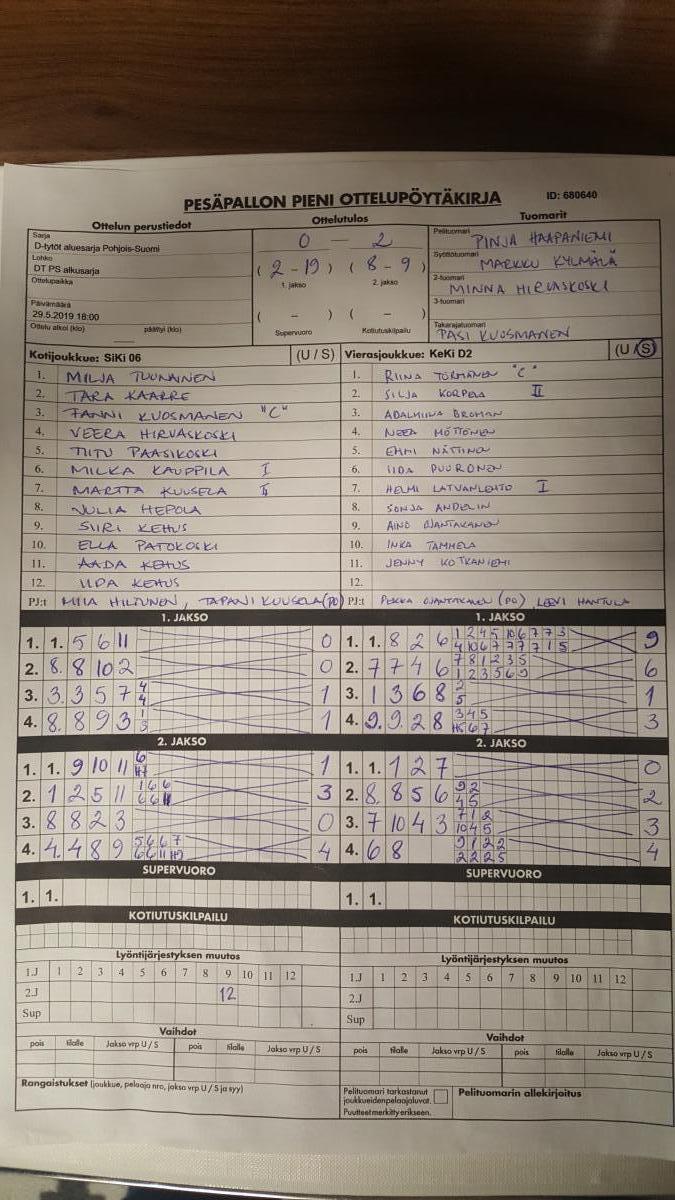 PESÄPALLON PIENI OTTELUPÖYTÄKIRJA ID: 680640
Ottelun perustiedot Ottelutulos Tuomarit
Sarja
D-tytöt aluesarja Pohjois-Suomi
Lohko
DT PS alkusarja
Ottelupaikka
Päivämäärä
29.5.2019 18:00
Ottelu alkoi (klo) päättyi (klo)
0 – 2
(2-19) (8-9)
1. jakso 2. jakso
( – ) ( – )
Supervuoro Kotiutuskilpailu
Pelituomari
PINJA HAAPANIEMI
Syöttötuomari
MARKKU KYLMÄLÄ
2-tuomari
MINNA HIRVASKOSKI
3-tuomari
Takarajatuomari
PASI KUOSMANEN
Kotijoukkue: SiKi 06 (U / S) Vierasjoukkue: KeKi D2 (U / S)
1. MILJA TUUNAINEN 1. RIINA TÖRMÄNEN "C"
2. TARA KAARRE 2. SILJA KORPELA II
3. FANNI KUOSMANEN "C" 3. ADALMIINA BROMAN
4. VEERA HIRVASKOSKI 4. NEEA MÖTTÖNEN
5. TIITU PAASIKOSKI 5. EMMI NÄTTINEN
6. MILKA KAUPPILA I 6. IIDA PUURONEN
7. MARTTA KUUSELA II 7. HELMI LATVANLEHTO I
8. JULIA HEPOLA 8. SONJA ANDELIN
9. SIIRI KEHUS 9. AINO OJANTAKANEN
10. ELLA PATOKOSKI 10. INKA TAMMELA
11. AADA KEHUS 11. JENNY KOTKANIEMI
12. IIDA KEHUS 12.
PJ:t MIIA HILTUNEN, TAPANI KUUSELA (PO) PJ:t PEKKA OJANTAKANEN (PO) LEEVI HANTULA
1. JAKSO 1. JAKSO
1. 1. 5 6 11 0 1. 1. 8 2 6 1 2 4 5 10 6 7 7 3 9
4 10 6 7 7 7 7 1 5
2. 8. 8 10 2 0 2. 7 7 4 6 7 8 1 2 3 5 6
1 2 3 5 6 9
3. 3. 3 5 7 4 1 3. 1 3 6 8 2 1
4 5
4. 8. 8 9 3 1 1 4. 9. 9 2 8 3 4 5 3
3 H5 6 7
2. JAKSO 2. JAKSO
1. 1. 9 10 11 6 1 1. 1. 1 2 7 0
H7
2. 1 2 5 11 1 6 6 3 2. 8. 8 5 6 9 2 2
6 6 11 4 5
3. 8 8 2 3 0 3. 7 10 4 3 7 1 2 3
10 4 5
4. 4. 4 8 9 5 6 6 7 4 4. 6 8 9 1 2 2 4
6 6 11 H9 2 2 2 5
SUPERVUORO SUPERVUORO
1. 1. 1. 1.
KOTIUTUSKILPAILU KOTIUTUSKILPAILU
Lyöntijärjestyksen muutos Lyöntijärjestyksen muutos
1.J 1 2 3 4 5 6 7 8 9 10 11 12 1.J 1 2 3 4 5 6 7 8 9 10 11 12
2.J 12 2.J
Sup Sup
Vaihdot Vaihdot
pois tilalle Jakso vrp U / S pois tilalle Jakso vrp U / S pois tilalle Jakso vrp U / S pois tilalle Jakso vrp U / S
Rangaistukset (joukkue, pelaaja nro, jakso vrp U / S ja syy)
Pelituomari tarkastanut
joukkueiden pelaajaluvat.
Puutteet merkitty erikseen.
Pelituomarin allekirjoitus